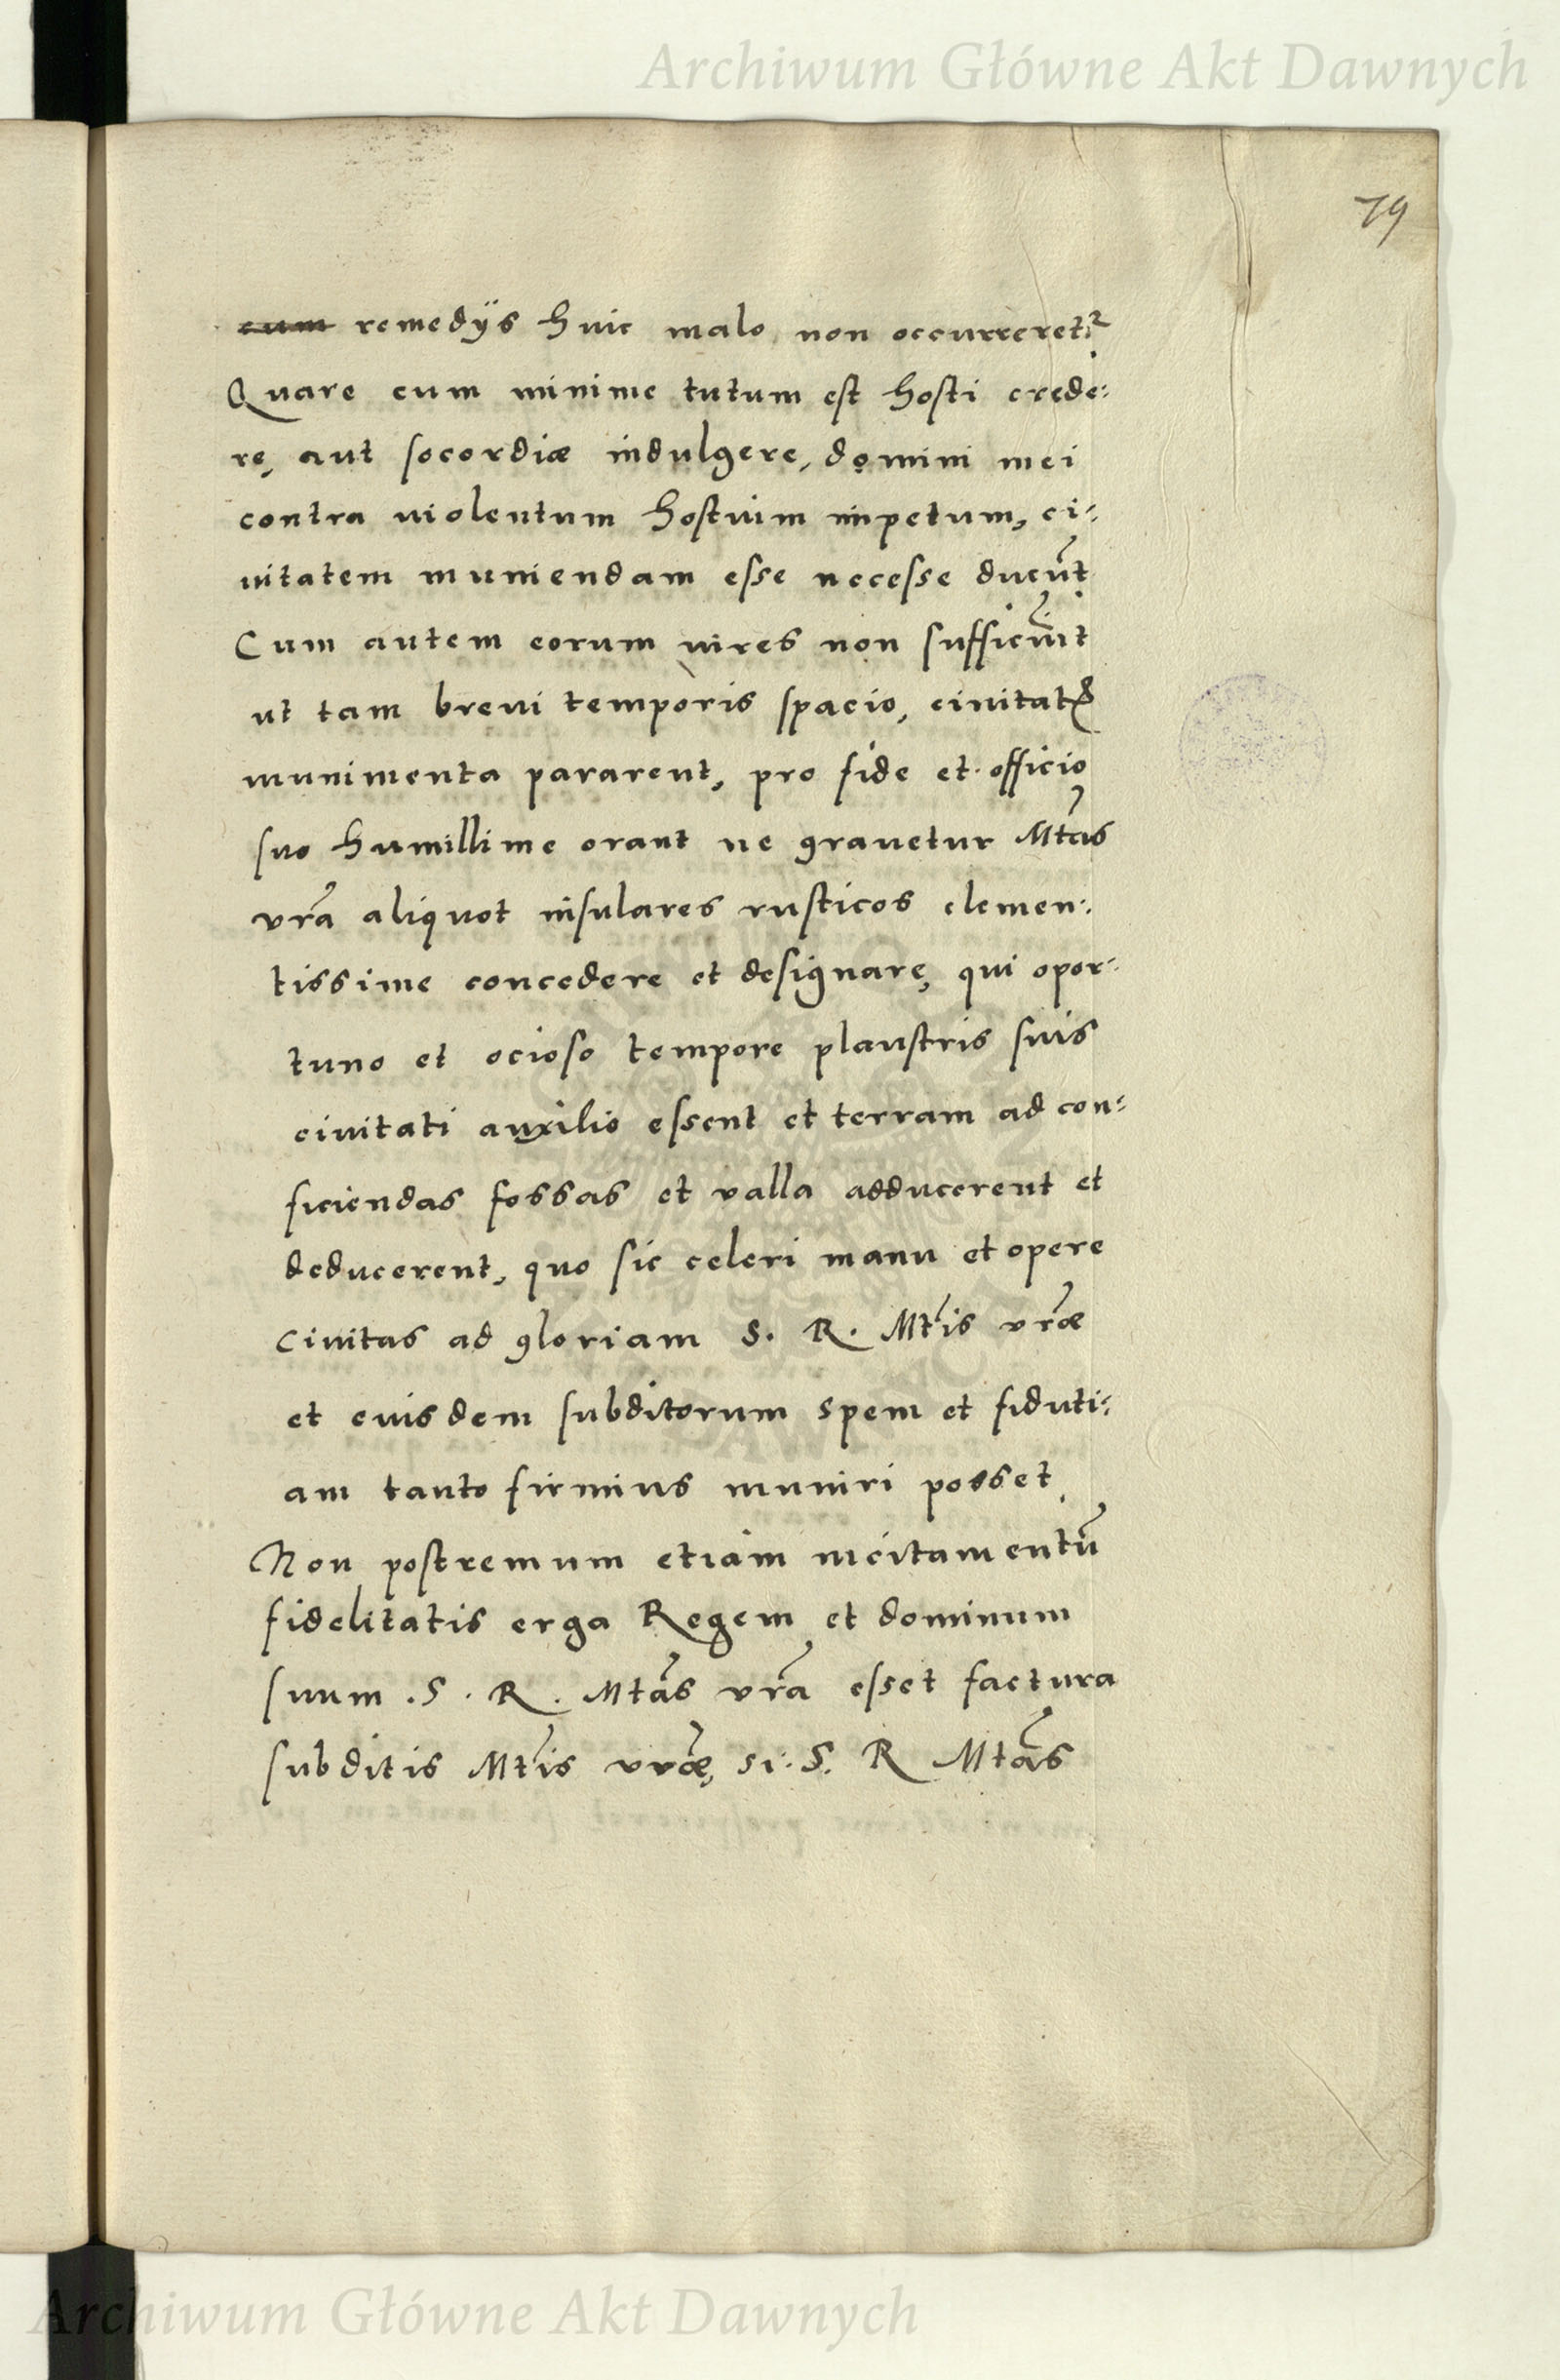 Archiwum Główne Akt Dawnych
79
cum remedÿs huic malo non occurreretr
Quare cum minime tutum est hosti crede:
re, aut socordiæ indulgere, domini mei
contra uiolentum hostium impetum, ci:
uitatem muniendam esse necesse ducūt.
Cum autem eorum uires non sufficiūt
ut tam breui temporis spacio, ciuitatꝭ
munimenta pararent, pro fide et officio
suo humillime orant ne grauetur Mtas
vra aliquot insulares rusticos clemen:
tissime concedere et designare, qui opor:
tuno et ocioso tempore plaustris suis
ciuitati auxilio essent et terram ad con:
ficiendas fossas et valla adducerent et
deducerent, quo sic celeri manu et opere
Ciuitas ad gloriam S. R. Mtis vræ
et eiusdem subditorum spem et fiduti:
am tanto firmius muniri posset.
Non postremum etiam incitamentū
fidelitatis erga Regem et dominum
suum .S. R. Mtas vra esset factura
subditis Mtis vræ, si S. R Mtas
Archiwum Główne Akt Dawnych